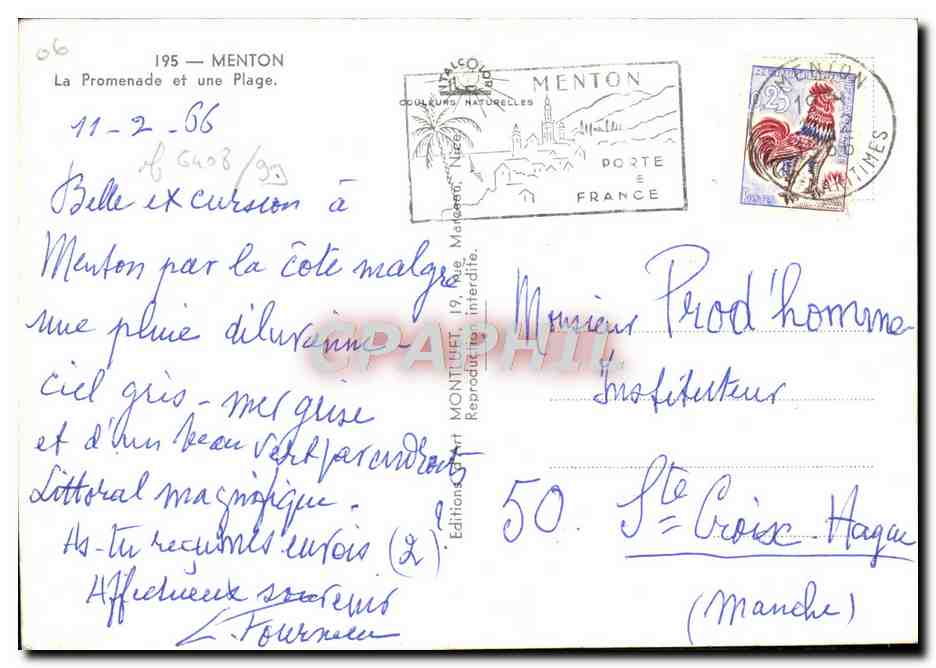 06
195 — MENTON
La Promenade et une Plage.
11-2-66
Belle excursion à
Menton par la côte malgré
une pluie diluvienne -
ciel gris - mer grise
et d'un beau vert par endroits
Littoral magnifique.
As-tu reçu mes envois (2)?
Affectueux souvenir
L. Fourneau
COULEURS NATURELLES
Editions d'Art MONTLUET, 19, rue Marceau, Nice
Reproduction interdite.
MENTON
PORTE
FRANCE
0,25
MENTON
MARITIMES
Monsieur Prod'homme
Instituteur
50. Ste Croix-Hague
(Manche)
CPAPHIL